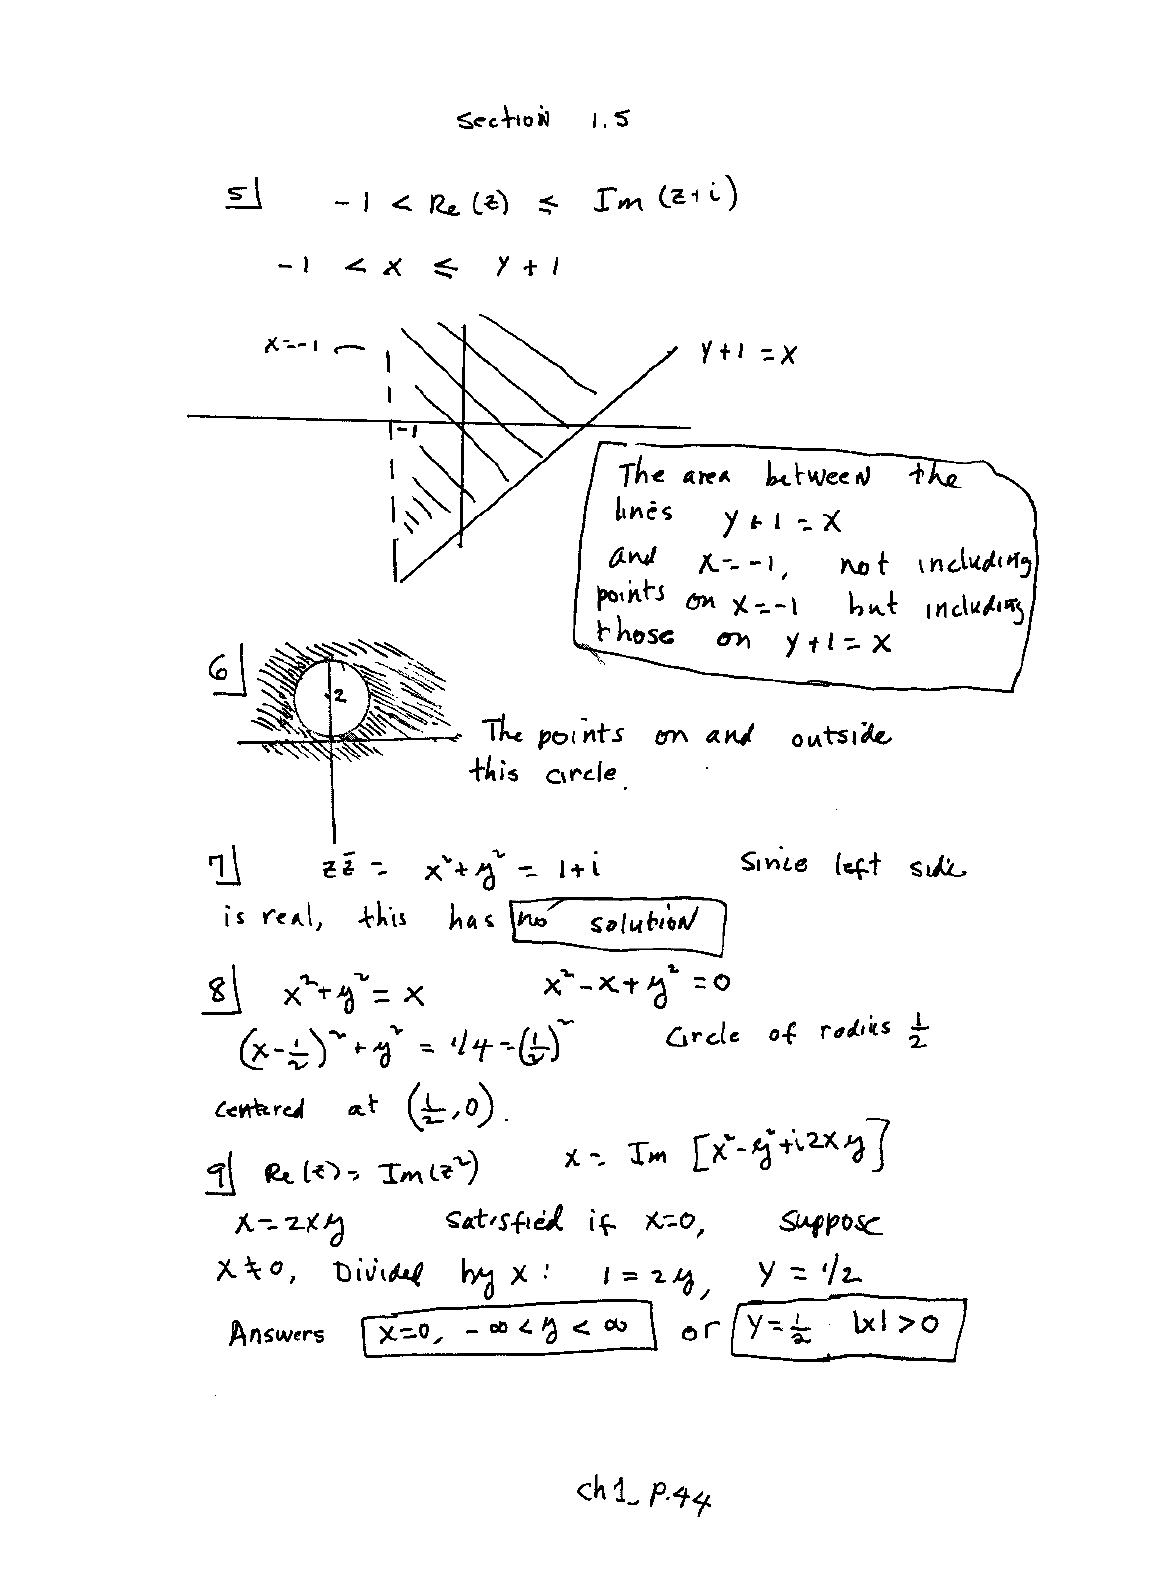 Section 1.5
5| -1 < Re (z) ≤ Im (z+i)
-1 < x ≤ y + 1
x=-1
y+1 = x
-1
The area between the
lines y+1 = x
and x=-1, not including
points on x=-1 but including
those on y+1 = x
6|
2
The points on and outside
this circle.
7| z z̄ = x² + y² = 1+i Since left side
is real, this has no solution
8| x² + y² = x x² - x + y² = 0
(x - 1/2)² + y² = 1/4 = (1/2)² Circle of radius 1/2
centered at (1/2, 0).
9| Re (z) = Im (z²) x = Im [x² - y² + i2xy]
x = 2xy satisfied if x=0, Suppose
x ≠ 0, Divided by x: 1 = 2y, y = 1/2
Answers x=0, -∞ < y < ∞ or y = 1/2 |x| > 0
ch1_ P.44